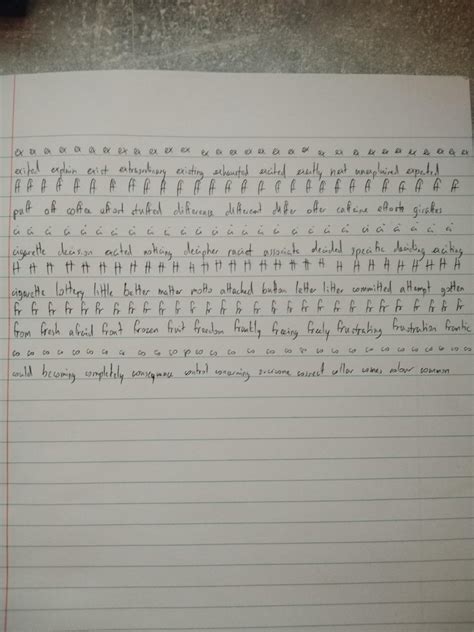 ex ex ex ex ex ex ex ex ex ex ex ex ex ex ex ex ex ex ex ex ex ex ex ex ex ex ex ex
exited explain exist extraordinary existing exhausted excited exactly next unexplained expected
ff ff ff ff ff ff ff ff ff ff ff ff ff ff ff ff ff ff ff ff ff ff ff ff ff ff
puff off coffee effort stuffed difference different differ offer caffeine efforts giraffes
ci ci ci ci ci ci ci ci ci ci ci ci ci ci ci ci ci ci ci ci ci ci
cigarette decision excited noticing decipher racist associate decided specific deciding exciting
tt tt tt tt tt tt tt tt tt tt tt tt tt tt tt tt tt tt tt tt tt tt tt tt tt tt
cigarette lottery little better matter motto attached button letter litter committed attempt gotten
fr fr fr fr fr fr fr fr fr fr fr fr fr fr fr fr fr fr fr fr fr fr fr fr fr fr
from fresh afraid front frozen fruit freedom frantly freeing freely frustrating frustration frantic
co co co co co co co co co co co co co co co co co co co co co co co co co co co
could becoming completely consequence control concerning overcome connect collar comes colour common